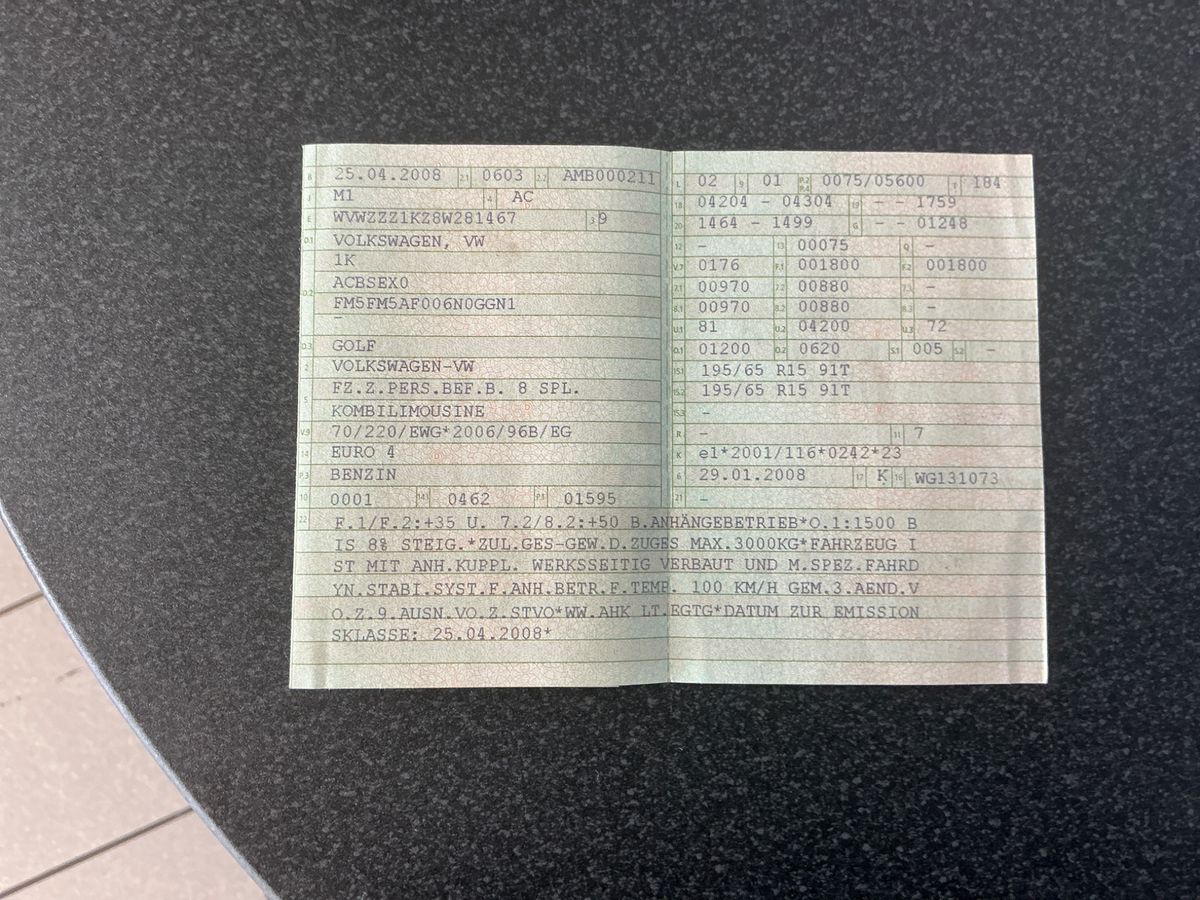 B 25.04.2008 2.1 0603 2.2 AMB000211
J M1 4 AC
E WVWZZZ1KZ8W281467 3 9
D.1 VOLKSWAGEN, VW
1K
D.2 ACBSEX0
FM5FM5AF006N0GGN1
–
D.3 GOLF
2 VOLKSWAGEN-VW
5 FZ.Z.PERS.BEF.B. 8 SPL.
KOMBILIMOUSINE
V.9 70/220/EWG*2006/96B/EG
14 EURO 4
P.3 BENZIN
10 0001 14.1 0462 P.1 01595
L 02 9 01 P.2 P.4 0075/05600 T 184
18 04204 - 04304 19 - - 1759
20 1464 - 1499 G - - 01248
12 - 13 00075 Q -
V.7 0176 F.1 001800 F.2 001800
7.1 00970 7.2 00880 7.3 -
8.1 00970 8.2 00880 8.3 -
U.1 81 U.2 04200 U.3 72
O.1 01200 O.2 0620 S.1 005 S.2 -
15.1 195/65 R15 91T
15.2 195/65 R15 91T
15.3 -
R - 11 7
K e1*2001/116*0242*23
6 29.01.2008 17 K 16 WG131073
21 -
22 F.1/F.2:+35 U. 7.2/8.2:+50 B.ANHÄNGEBETRIEB*O.1:1500 B
IS 8% STEIG.*ZUL.GES-GEW.D.ZUGES MAX.3000KG*FAHRZEUG I
ST MIT ANH.KUPPL. WERKSSEITIG VERBAUT UND M.SPEZ.FAHRD
YN.STABI.SYST.F.ANH.BETR.F.TEMP. 100 KM/H GEM.3.AEND.V
O.Z.9.AUSN.VO.Z.STVO*WW.AHK LT.EGTG*DATUM ZUR EMISSION
SKLASSE: 25.04.2008*